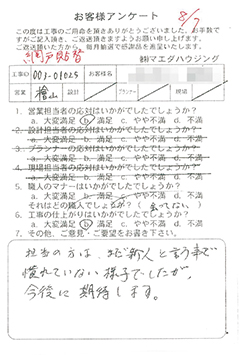 お客様アンケート
8/7
この度は工事のご用命を頂きありがとうございました。お手数で
すがご記入頂き、ご返送頂きますようお願い申し上げます。
ご返送頂いた方から、毎月抽選で感謝品を進呈いたします。
網戸貼替
㈱マエダハウジング
工事ID 003-01025 お客様名
営業 檜山 設計 プランナー 現場
1. 営業担当者の応対はいかがでしたでしょうか?
a. 大変満足 b 満足 c. やや不満 d. 不満
2. 設計担当者の応対はいかがでしたでしょうか?
a. 大変満足 b. 満足 c. やや不満 d. 不満
3. プランナーの応対はいかがでしたでしょうか?
a. 大変満足 b. 満足 c. やや不満 d. 不満
4. 現場担当者の応対はいかがでしたでしょうか?
a. 大変満足 b. 満足 c. やや不満 d. 不満
5. 職人のマナーはいかがでしたでしょうか?
a. 大変満足 b. 満足 c. やや不満 d. 不満
それはどの職人でしょうか? (会ってない)
6. 工事の仕上がりはいかがでしたでしょうか?
a. 大変満足 b 満足 c. やや不満 d. 不満
7. その他、ご意見・ご要望をお書き下さい。
担当の方は、まだ新人と言う事で
慣れていない様子でしたが、
今後に期待します。